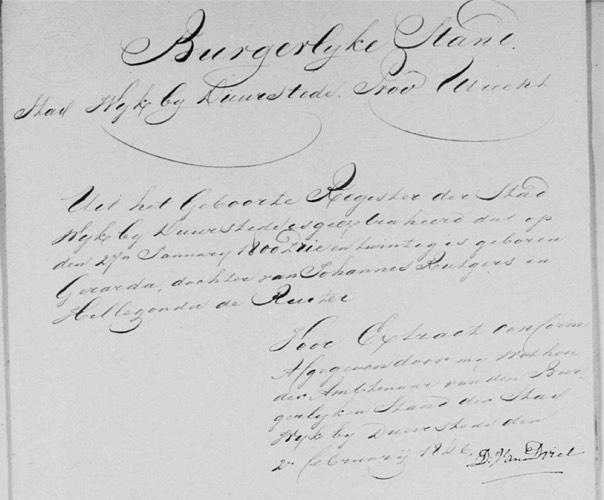 Burgerlyke Stand.
Stad Wyk by Duurstede. Prov Utrecht
Uit het Geboorte Register der Stad
Wyk by Duurstede is geextraheerd dat op
den 27n January 1800 Drie en twintig is geboren
Gerarda, dochter van Johannes Rutgers en
Hillegonda de Ruiter
Voor Extract conform
Afgegeven door my Wethou
der Ambtenaar van den Bur
gerlyken Stand der Stad
Wyk by Duurstede den
2n february 1846. D. Van